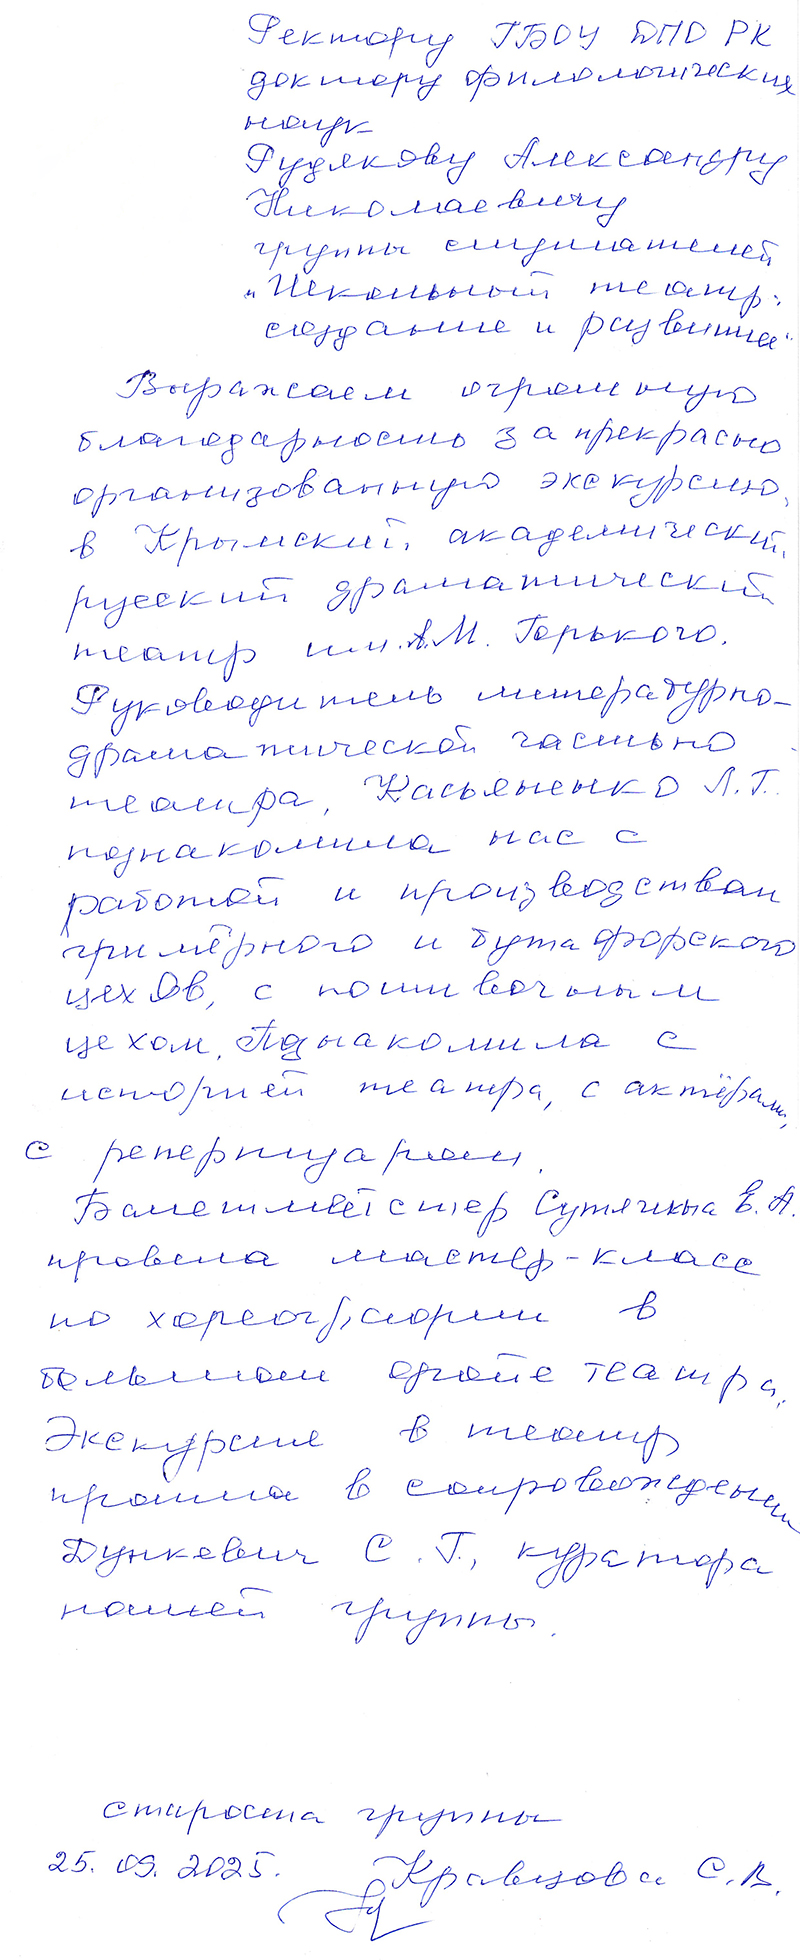 Ректору ГБОУ ДПО РК
доктору филологических
наук
Рудякову Александру
Николаевичу
группы слушателей
„Школьный театр:
создание и развитие"
Выражаем огромную
благодарность за прекрасно
организованную экскурсию,
в Крымский, академический,
русский драматический
театр им. А.М. Горького.
Руководитель литературно-
драматической частью
театра, Касьяненко Л.Г.
познакомила нас с
работой и производствам
гримёрного и бутафорского
цехов, с пошивочным
цехом. Познакомила с
историей театра, с актёрами,
с репертуаром.
Балетмейстер Сутячкина Е.А.
провела мастер-класс
по хореографии в
большом фойе театра.
Экскурсия в театр
прошла в сопровождении
Дункевич С.Г., куратора
нашей группы.
староста группы
25.09.2025. Кравцова С.В.